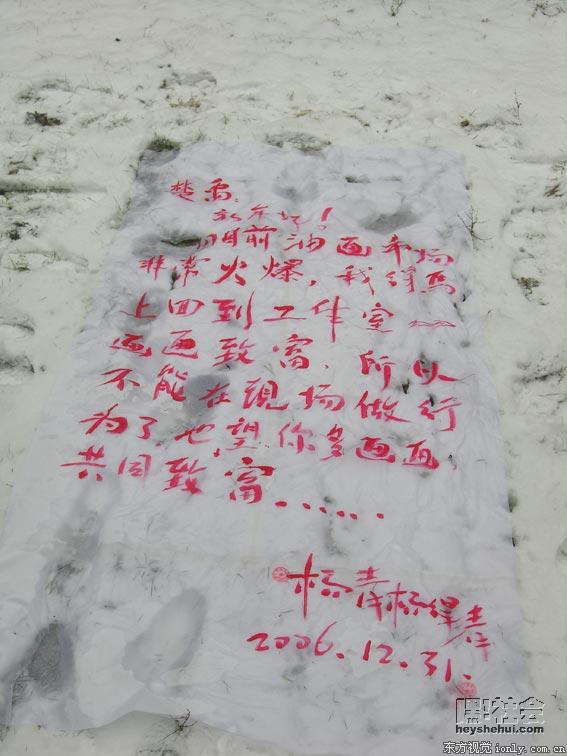 楚禹：
新年好！
目前油画市场
非常火爆，我得马
上回到工作室
画画致富，所以
不能在現场做行
为了，也望你多画画，
共同致富……
杨青
2006.12.31.
黑社会
heyshehui.com
东方视觉 ionly.com.cn